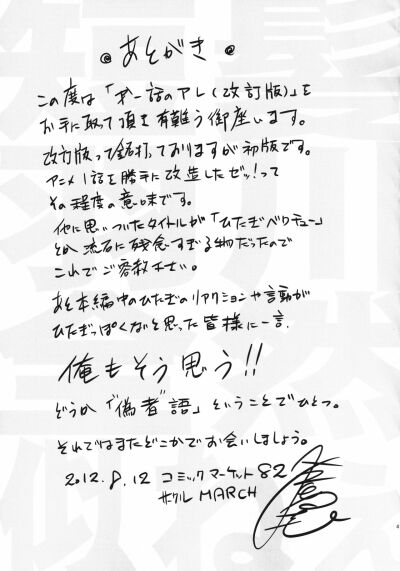 @ あとがき @
この度は「第一話のアレ(改訂版)」を
お手に取って頂き有難う御座います。
改訂版って銘打っておりますが初版です。
アニメ1話を勝手に改造したゼッ!って
その程度の意味です。
他に思いついたタイトルが「ひたぎベクチュー」
とか流石に残念すぎる物だったので
これでご容赦下さい。
あと本編中のひたぎのリアクションや言動が
ひたぎっぽくないと思った皆様に一言、
俺もそう思う!!
どうか“偽者”語」ということでひとつ。
それではまたどこかでお会いしましょう。
2012.8.12 コミックマーケット82
サークル MARCH
4